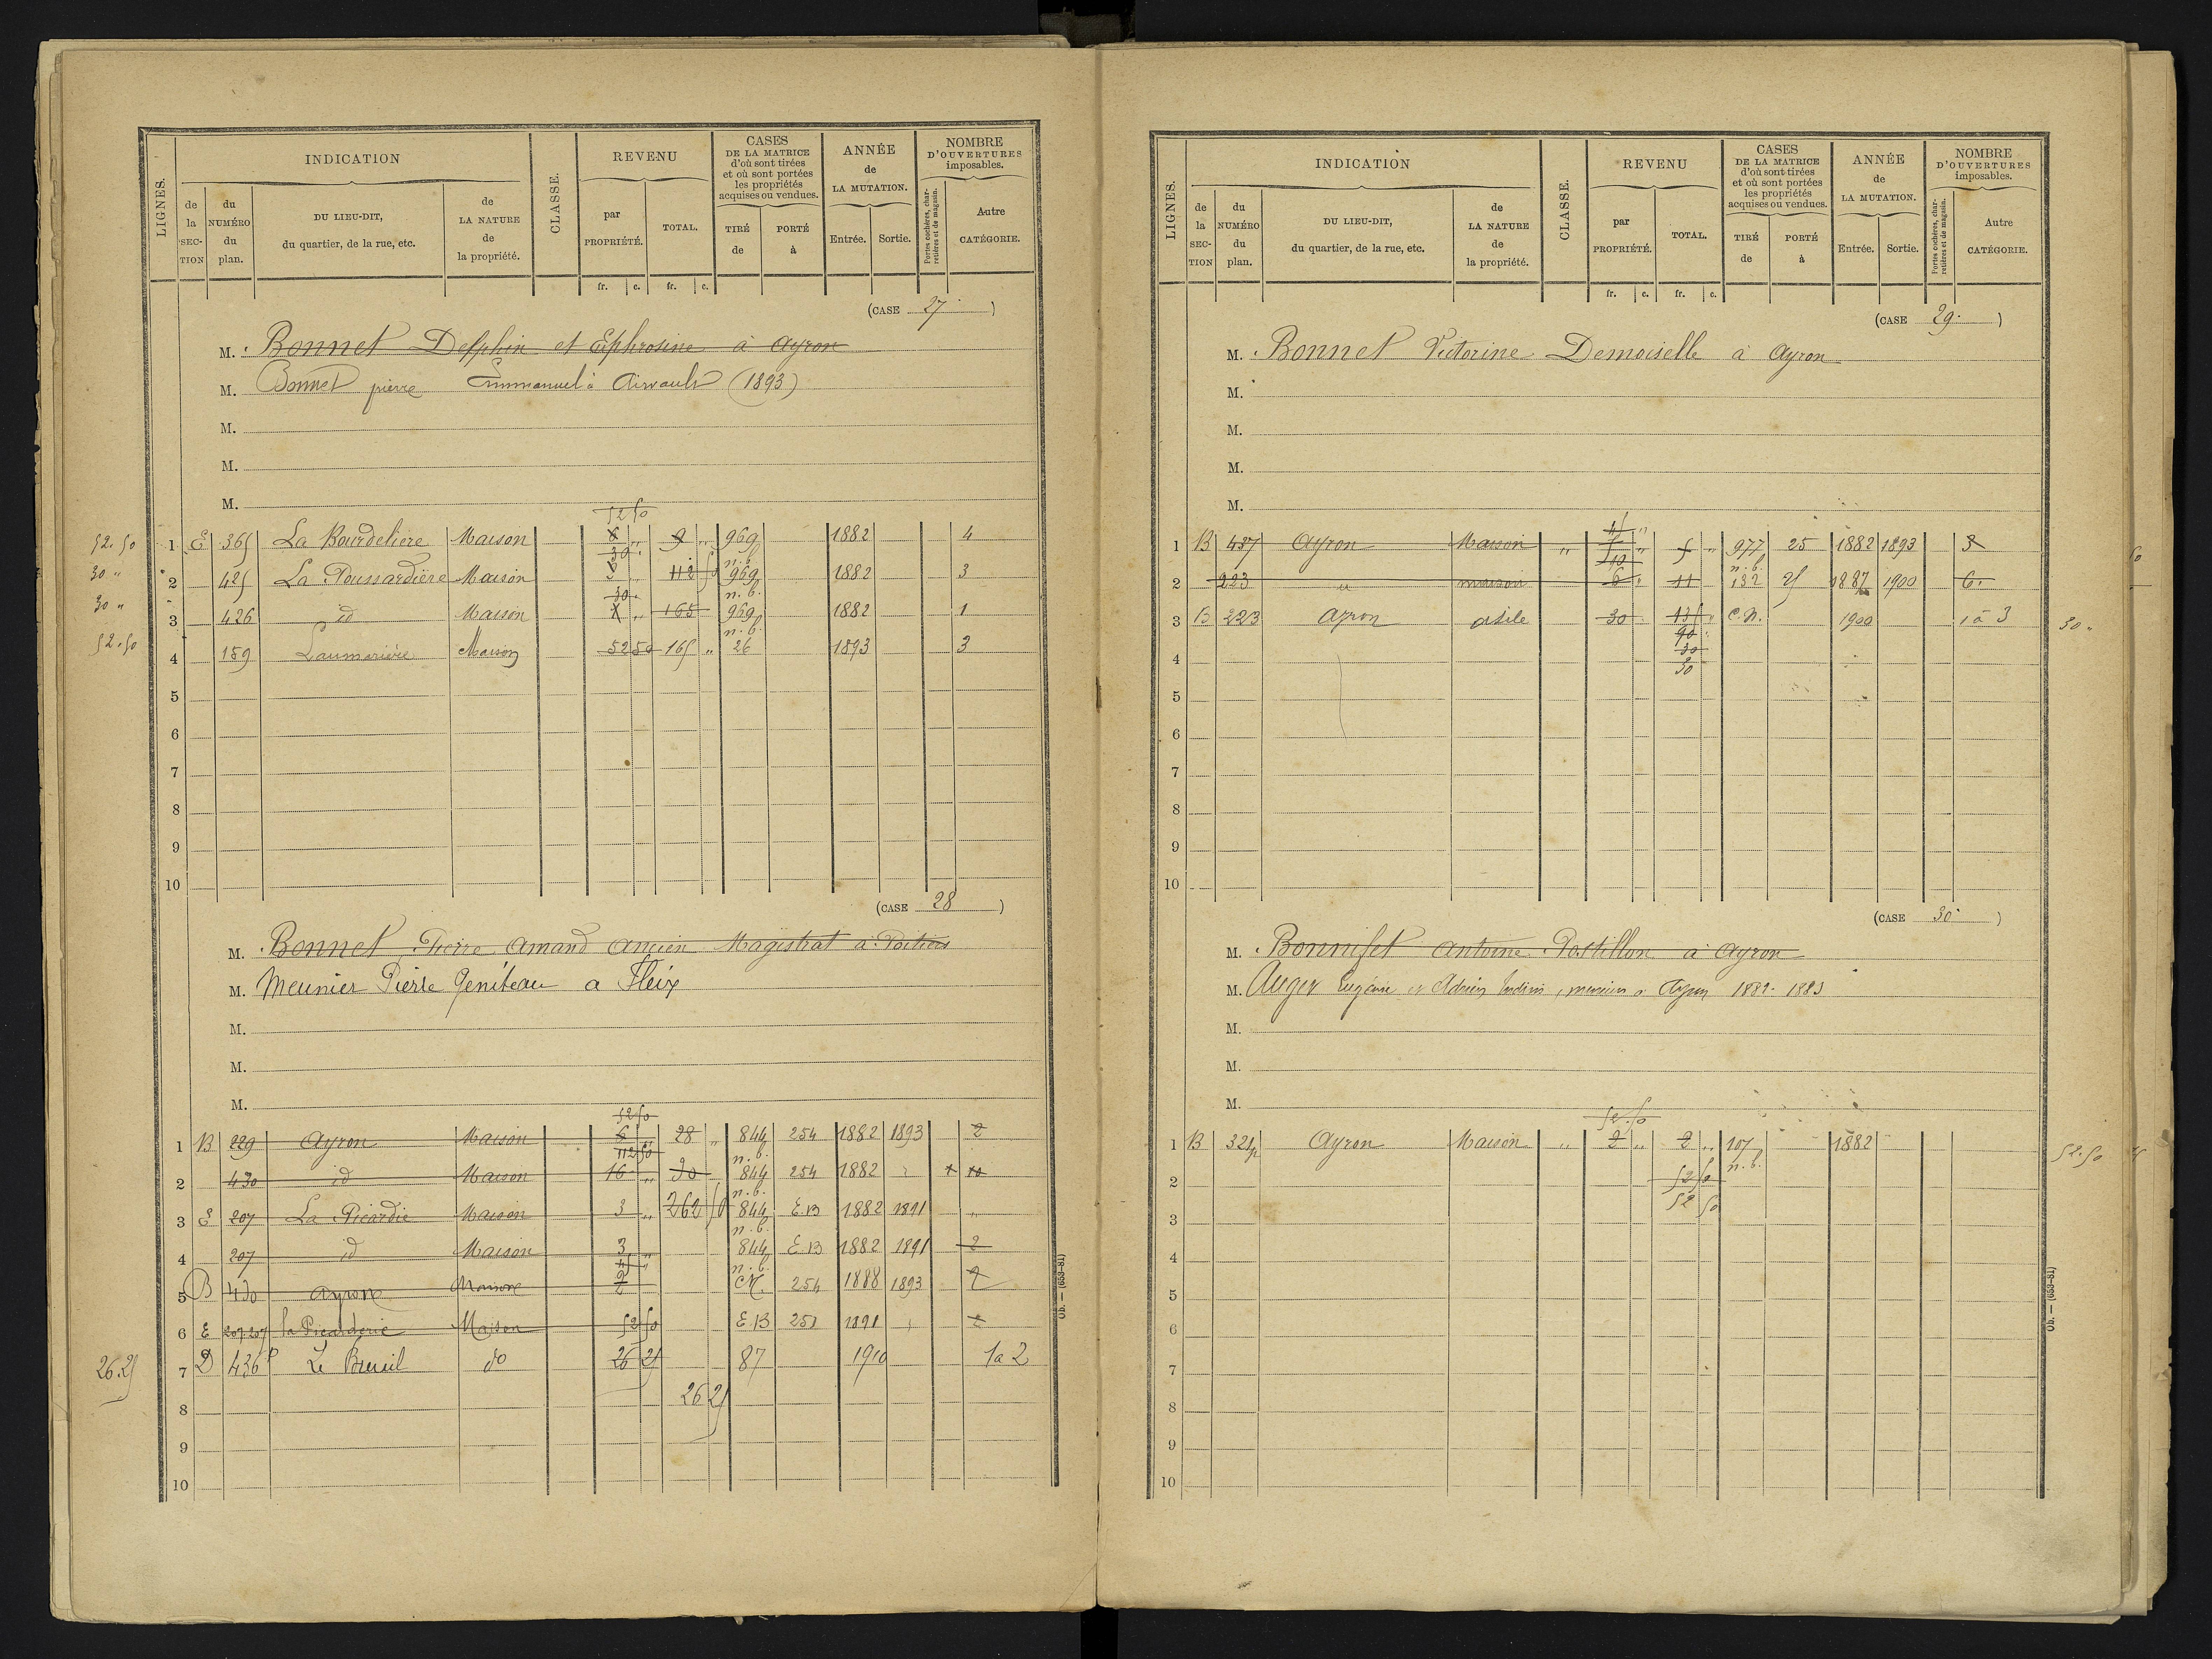 LIGNES.
INDICATION
de la SECTION
du NUMÉRO du plan.
DU LIEU-DIT, du quartier, de la rue, etc.
de LA NATURE de la propriété.
CLASSE.
REVENU
par PROPRIÉTÉ.
TOTAL.
fr. c. fr. c.
CASES DE LA MATRICE d'où sont tirées et où sont portées les propriétés acquises ou vendues.
TIRÉ de
PORTÉ à
ANNÉE de LA MUTATION.
Entrée. Sortie.
NOMBRE D'OUVERTURES imposables.
Portes cochères, charretières et de magasin.
Autre CATÉGORIE.
(CASE 27)
M. Bonnet Delphin et Ephrosine à Ayron
M. Bonnet pierre Emmanuel à Airvault (1893)
M.
M.
M.
52 50
52.50 1 E 365 La Bourdeliere Maison 8 " 9 " 969 1882 4
30 " n.b.
30 " 2 425 La Poussardière Maison 3 " 112 50 969 1882 3
30 " n.b.
30 " 3 426 id Maison 1 " 165 969 1882 1
n.b.
52.50 4 159 Laumarière Maison 52 50 165 " 26 1893 3
5
6
7
8
9
10
(CASE 28)
M. Bonnet Pierre Amand Ancien Magistrat à Poitiers
M. Meunier Pierre Geniteau a Fleix
M.
M.
M.
52 50
1 B 229 Ayron Maison 6 " 28 " 844 254 1882 1893 2
112 50 n.b.
2 430 id Maison 16 " 90 844 254 1882 " 10
n.b.
3 E 207 La Picardie Maison 3 " 262 50 844 E.B 1882 1891 "
n.b.
4 207 id Maison 3 " 844 E.B 1882 1891 2
45 " n.b.
5 B 430 Ayron Maison 2 CN. 254 1888 1893 2
6 E 207.207 la Picarderie Maison 52 50 E.B 251 1891 " 2
26.25 7 D 436p Le Breuil do 26 25 87 1910 1a 2
8 26 25
9
10
Ob. — (653-81)
LIGNES.
INDICATION
de la SECTION
du NUMÉRO du plan.
DU LIEU-DIT, du quartier, de la rue, etc.
de LA NATURE de la propriété.
CLASSE.
REVENU
par PROPRIÉTÉ.
TOTAL.
fr. c. fr. c.
CASES DE LA MATRICE d'où sont tirées et où sont portées les propriétés acquises ou vendues.
TIRÉ de
PORTÉ à
ANNÉE de LA MUTATION.
Entrée. Sortie.
NOMBRE D'OUVERTURES imposables.
Portes cochères, charretières et de magasin.
Autre CATÉGORIE.
(CASE 29)
M. Bonnet Victorine Demoiselle à Ayron
M.
M.
M.
M.
45 "
1 B 437 Ayron Maison " 5 " 977 25 1882 1893 3
n.b.
2 223 maison 6 " 11 132 25 1887 1900 6
3 B 223 Ayron asile 30 135 " C.N. 1900 1 à 3 30 "
90
4 30
30
5
6
7
8
9
10
(CASE 30)
M. Bonnifet Antoine Postillon à Ayron
M. Auger Eugénie et Adrien à Ayron 1882-1883
M.
M.
M.
52.50
1 B 321p Ayron Maison " 2 " 2 " 107 1882 52.50
n.b.
2 52 50
3 52 50
4
5
6
7
8
9
10
Ob. — (653-81)